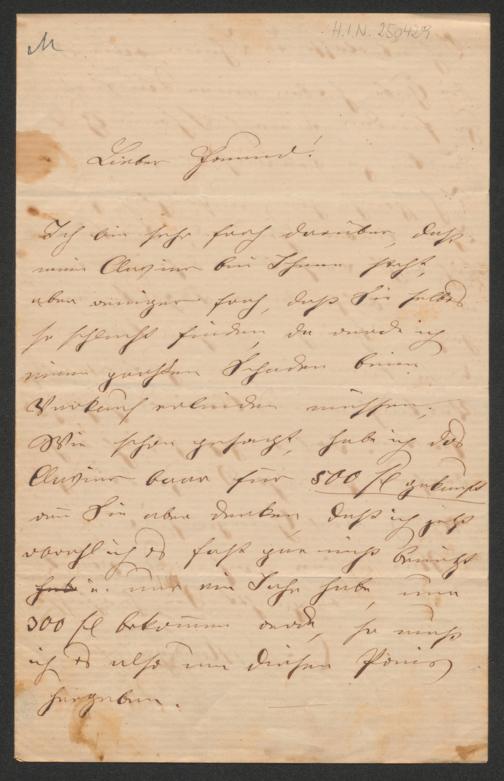 M
H.I.N. 250429
Lieber Freund!
Ich bin sehr froh darüber, daß
mein Clavier bei Ihnen steht,
aber weniger froh, daß Sie selbes
so schlecht finden, da werde ich
einen großen Schaden beim
Verkauf erleiden müssen.
Wie schon gesagt, hab ich das
Clavier baar für 500 fl gekauft
wenn Sie aber denken, daß ich jetzt
obwohl ich es fast gar nicht benützt
hab u. nur ein Jahr habe, nur
300 fl bekommen werde, so muß
ich es also um diesen Preis
hergeben.